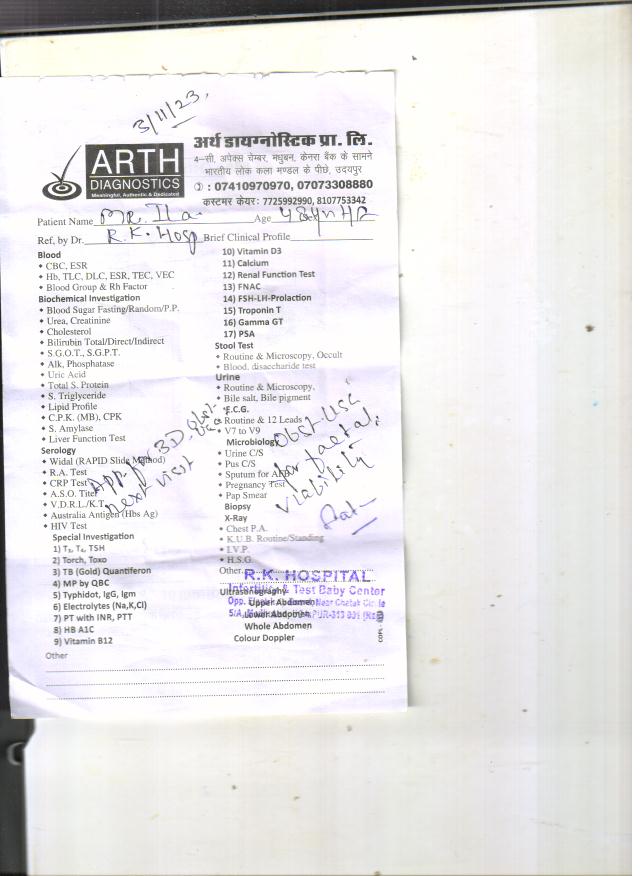 3/11/23,
ARTH
DIAGNOSTICS
Meaningful, Authentic & Dedicated
अर्थ डायग्नोस्टिक प्रा. लि.
4-सी, अपेक्स चेम्बर, मधुबन, केनरा बैंक के सामने
भारतीय लोक कला मण्डल के पीछे, उदयपुर
: 07410970970, 07073308880
कस्टमर केयर: 7725992990, 8107753342
Patient Name Mr. Ila Age
Ref, by Dr. R.K. Hosp Brief Clinical Profile
Blood
• CBC, ESR
• Hb, TLC, DLC, ESR, TEC, VEC
• Blood Group & Rh Factor
Biochemical Investigation
• Blood Sugar Fasting/Random/P.P.
• Urea, Creatinine
• Cholesterol
• Bilirubin Total/Direct/Indirect
• S.G.O.T., S.G.P.T.
• Alk, Phosphatase
• Uric Acid
• Total S. Protein
• S. Triglyceride
• Lipid Profile
• C.P.K. (MB), CPK
• S. Amylase
• Liver Function Test
Serology
• Widal (RAPID Slide Method)
• R.A. Test
• CRP Test
• A.S.O. Titer
• V.D.R.L./K.T.
• Australia Antigen (Hbs Ag)
• HIV Test
Special Investigation
1) T₃, T₄, TSH
2) Torch, Toxo
3) TB (Gold) Quantiferon
4) MP by QBC
5) Typhidot, IgG, Igm
6) Electrolytes (Na,K,Cl)
7) PT with INR, PTT
8) HB A1C
9) Vitamin B12
10) Vitamin D3
11) Calcium
12) Renal Function Test
13) FNAC
14) FSH-LH-Prolaction
15) Troponin T
16) Gamma GT
17) PSA
Stool Test
• Routine & Microscopy, Occult
• Blood, disaccharide test
Urine
• Routine & Microscopy,
• Bile salt, Bile pigment
E.C.G.
• Routine & 12 Leads
• V7 to V9
Microbiology
• Urine C/S
• Pus C/S
• Sputum for AFB
• Pregnancy Test
• Pap Smear
Biopsy
X-Ray
• Chest P.A.
• K.U.B. Routine/Standing
• I.V.P.
• H.S.G.
Other
Ultrasonography
Upper Abdomen
Lower Abdomen
Whole Abdomen
Colour Doppler
App. for 3D Obst-
USG
next visit
Obst-USG
for faetal
viability
R.K. HOSPITAL
Infertility & Test Baby Center
Other